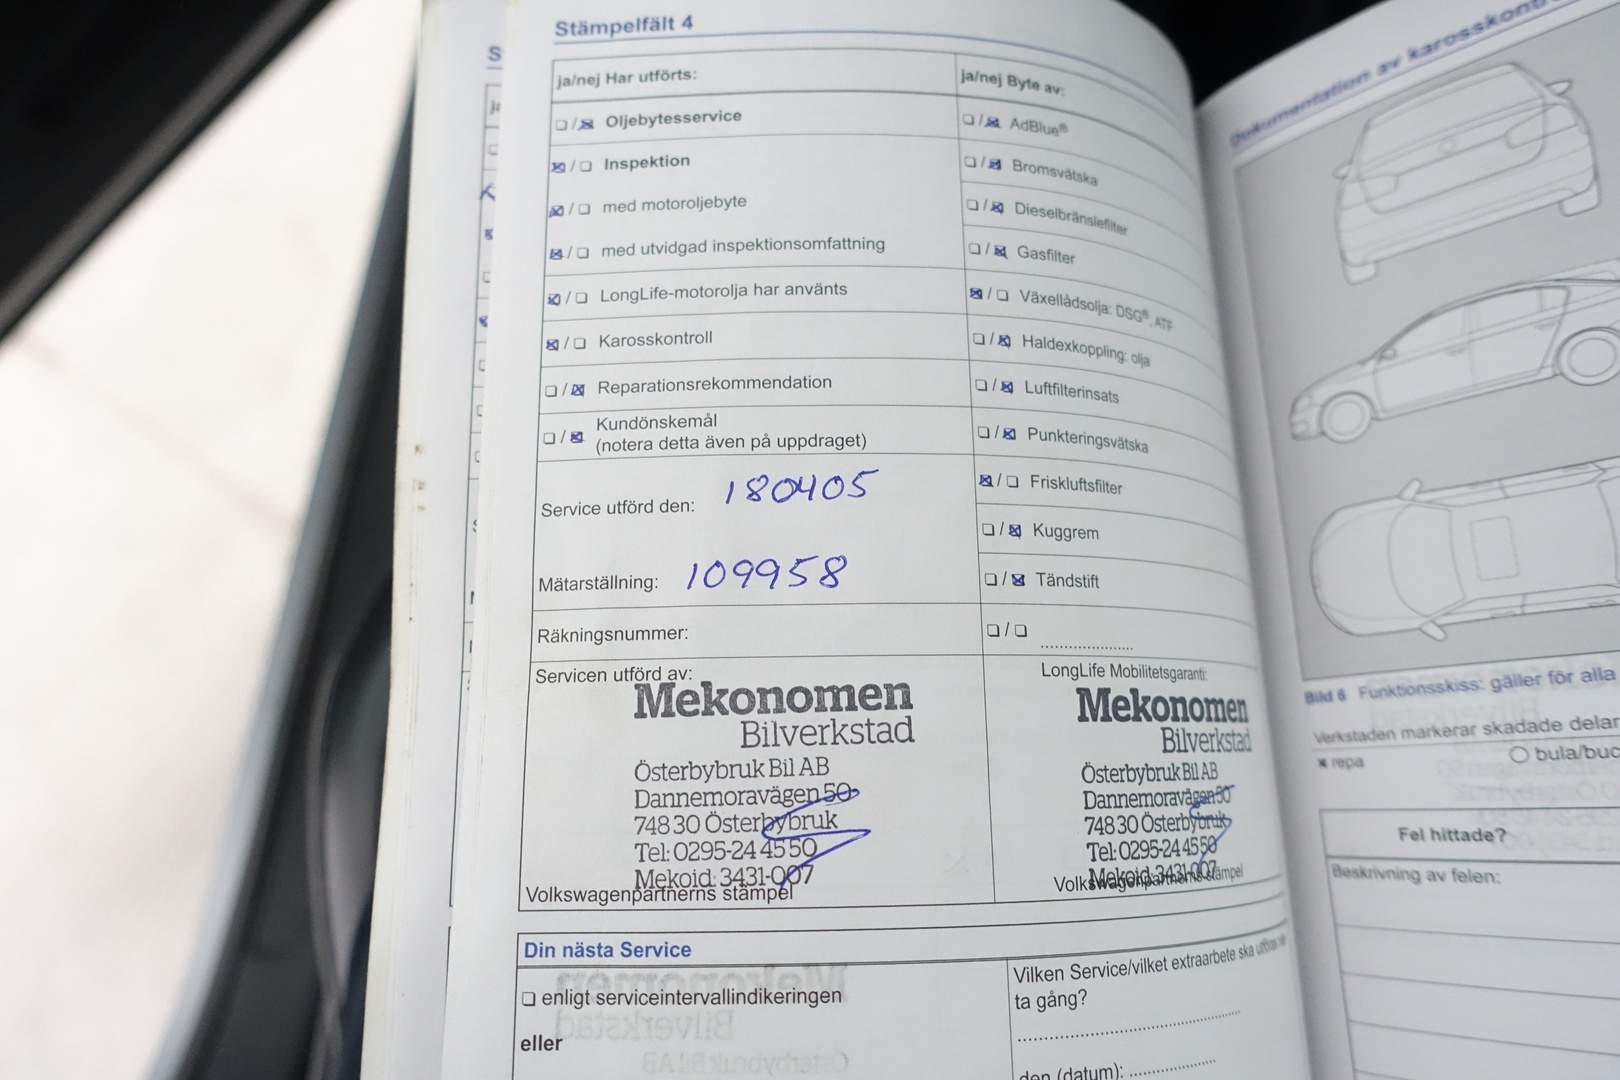 Stämpelfält 4
ja/nej Har utförts:
☐ / ☒ Oljebytesservice
☒ / ☐ Inspektion
☒ / ☐ med motoroljebyte
☒ / ☐ med utvidgad inspektionsomfattning
☒ / ☐ LongLife-motorolja har använts
☒ / ☐ Karosskontroll
☐ / ☒ Reparationsrekommendation
☐ / ☒ Kundönskemål
(notera detta även på uppdraget)
Service utförd den: 180405
Mätarställning: 109958
Räkningsnummer:
ja/nej Byte av:
☐ / ☒ AdBlue®
☐ / ☒ Bromsvätska
☐ / ☒ Dieselbränslefilter
☐ / ☒ Gasfilter
☒ / ☐ Växellådsolja: DSG®, ATF
☐ / ☒ Haldexkoppling: olja
☐ / ☒ Luftfilterinsats
☐ / ☒ Punkteringsvätska
☒ / ☐ Friskluftsfilter
☐ / ☒ Kuggrem
☐ / ☒ Tändstift
☐ / ☐ ....................
Servicen utförd av:
Mekonomen
Bilverkstad
Österbybruk Bil AB
Dannemoravägen 50
748 30 Österbybruk
Tel: 0295-24 45 50
Mekoid: 3431-007
Volkswagenpartnerns stämpel
LongLife Mobilitetsgaranti:
Mekonomen
Bilverkstad
Österbybruk Bil AB
Dannemoravägen 50
748 30 Österbybruk
Tel: 0295-24 45 50
Mekoid: 3431-007
Volkswagenpartnerns stämpel
Din nästa Service
☐ enligt serviceintervallindikeringen
eller
Vilken Service/vilket extraarbete ska utföras
ta gång?
den (datum):
Dokumentation av karosskont
Bild 6 Funktionsskiss: gäller för alla
Verkstaden markerar skadade delar
× repa
O bula/buc
Fel hittade?
Beskrivning av felen: